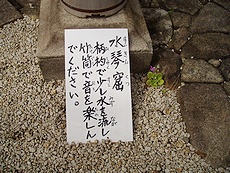 水琴窟
柄杓で少し水を流し、
竹筒で音を楽しん
でください。